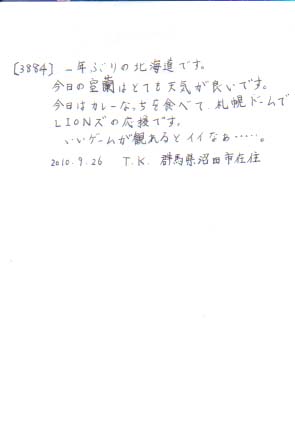 [3884] 一年ぶりの北海道です。
今日の室蘭はとても天気が良いです。
今日はカレーなっちを食べて、札幌ドームで
LIONズの応援です。
いいゲームが観れるとイイなぁ……。
2010.9.26 T.K. 群馬県沼田市在住